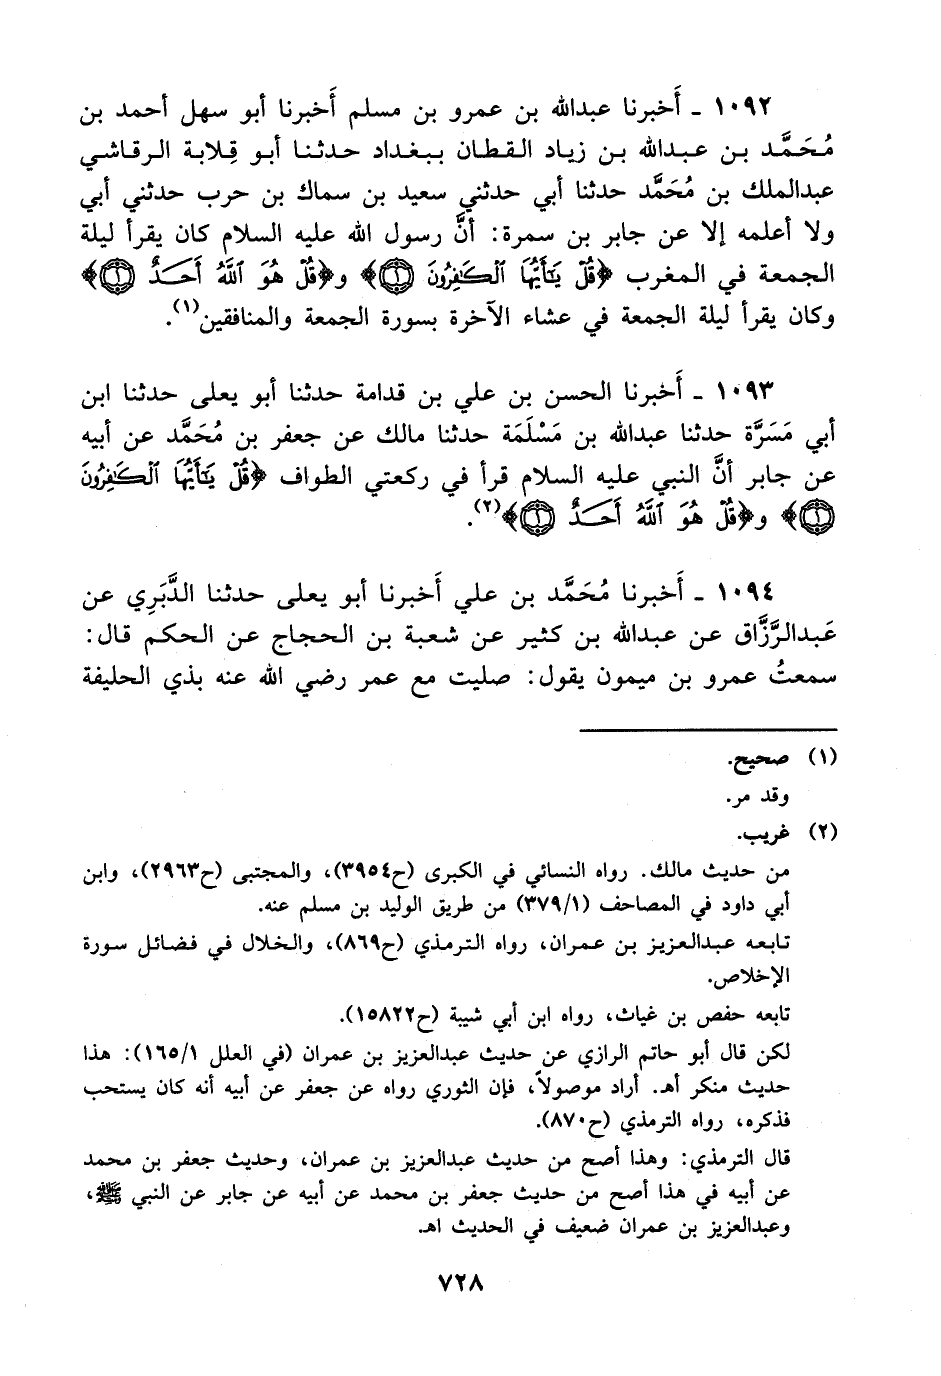 ١٠٩٢ ـ أَخبرنا عبدالله بن عمرو بن مسلم أَخبرنا أبو سهل أحمد بن
مُحَمَّد بن عبدالله بن زياد القطان ببغداد حدثنا أبو قِلابة الرقاشي
عبدالملك بن مُحَمَّد حدثنا أبي حدثني سعيد بن سماك بن حرب حدثني أبي
ولا أعلمه إلا عن جابر بن سمرة: أنَّ رسول الله عليه السلام كان يقرأ ليلة
الجمعة في المغرب ﴿قُلْ يَٰٓأَيُّهَا ٱلْكَٰفِرُونَ ۝١﴾ و﴿قُلْ هُوَ ٱللَّهُ أَحَدٌ ۝١﴾
وكان يقرأ ليلة الجمعة في عشاء الآخرة بسورة الجمعة والمنافقين(١).
١٠٩٣ ـ أَخبرنا الحسن بن علي بن قدامة حدثنا أبو يعلى حدثنا ابن
أبي مَسَرَّة حدثنا عبدالله بن مَسْلَمَة حدثنا مالك عن جعفر بن مُحَمَّد عن أبيه
عن جابر أنَّ النبي عليه السلام قرأ في ركعتي الطواف ﴿قُلْ يَٰٓأَيُّهَا ٱلْكَٰفِرُونَ
۝١﴾ و﴿قُلْ هُوَ ٱللَّهُ أَحَدٌ ۝١﴾(٢).
١٠٩٤ ـ أَخبرنا مُحَمَّد بن علي أَخبرنا أبو يعلى حدثنا الدَّبَرِي عن
عَبدالرَّزَّاق عن عبدالله بن كثير عن شعبة بن الحجاج عن الحكم قال:
سمعتُ عمرو بن ميمون يقول: صليت مع عمر رضي الله عنه بذي الحليفة
(١) صحيح.
وقد مر.
(٢) غريب.
من حديث مالك. رواه النسائي في الكبرى (ح٣٩٥٤)، والمجتبى (ح٢٩٦٣)، وابن
أبي داود في المصاحف (٣٧٩/١) من طريق الوليد بن مسلم عنه.
تابعه عبدالعزيز بن عمران، رواه الترمذي (ح٨٦٩)، والخلال في فضائل سورة
الإخلاص.
تابعه حفص بن غياث، رواه ابن أبي شيبة (ح١٥٨٢٢).
لكن قال أبو حاتم الرازي عن حديث عبدالعزيز بن عمران (في العلل ١٦٥/١): هذا
حديث منكر أهـ. أراد موصولاً، فإن الثوري رواه عن جعفر عن أبيه أنه كان يستحب
فذكره، رواه الترمذي (ح٨٧٠).
قال الترمذي: وهذا أصح من حديث عبدالعزيز بن عمران، وحديث جعفر بن محمد
عن أبيه في هذا أصح من حديث جعفر بن محمد عن أبيه عن جابر عن النبي ﷺ،
وعبدالعزيز بن عمران ضعيف في الحديث اهـ.
٧٢٨